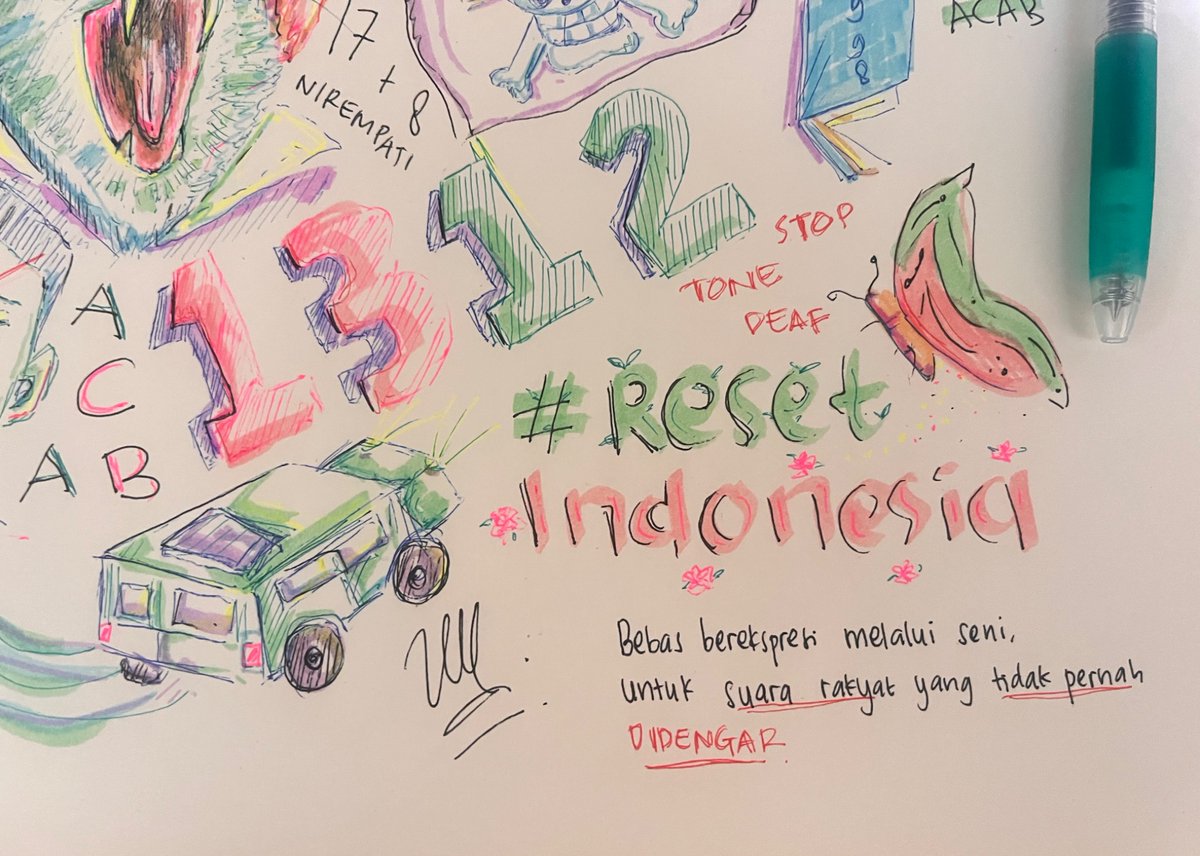 17
+ 8
NIREMPATI
ACAB
1312
STOP
TONE
DEAF
A
C
A B
#Reset
Indonesia
Bebas berekspresi melalui seni,
untuk suara rakyat yang tidak pernah
DIDENGAR.